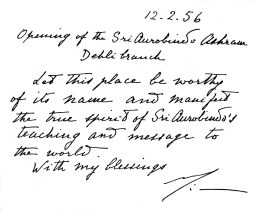 12.2.56
Opening of the Sri Aurobindo Ashram
Dehli branch
Let this place be worthy
of its name and manifest
the true spirit of Sri Aurobindo's
teaching and message to
the world
With my blessings